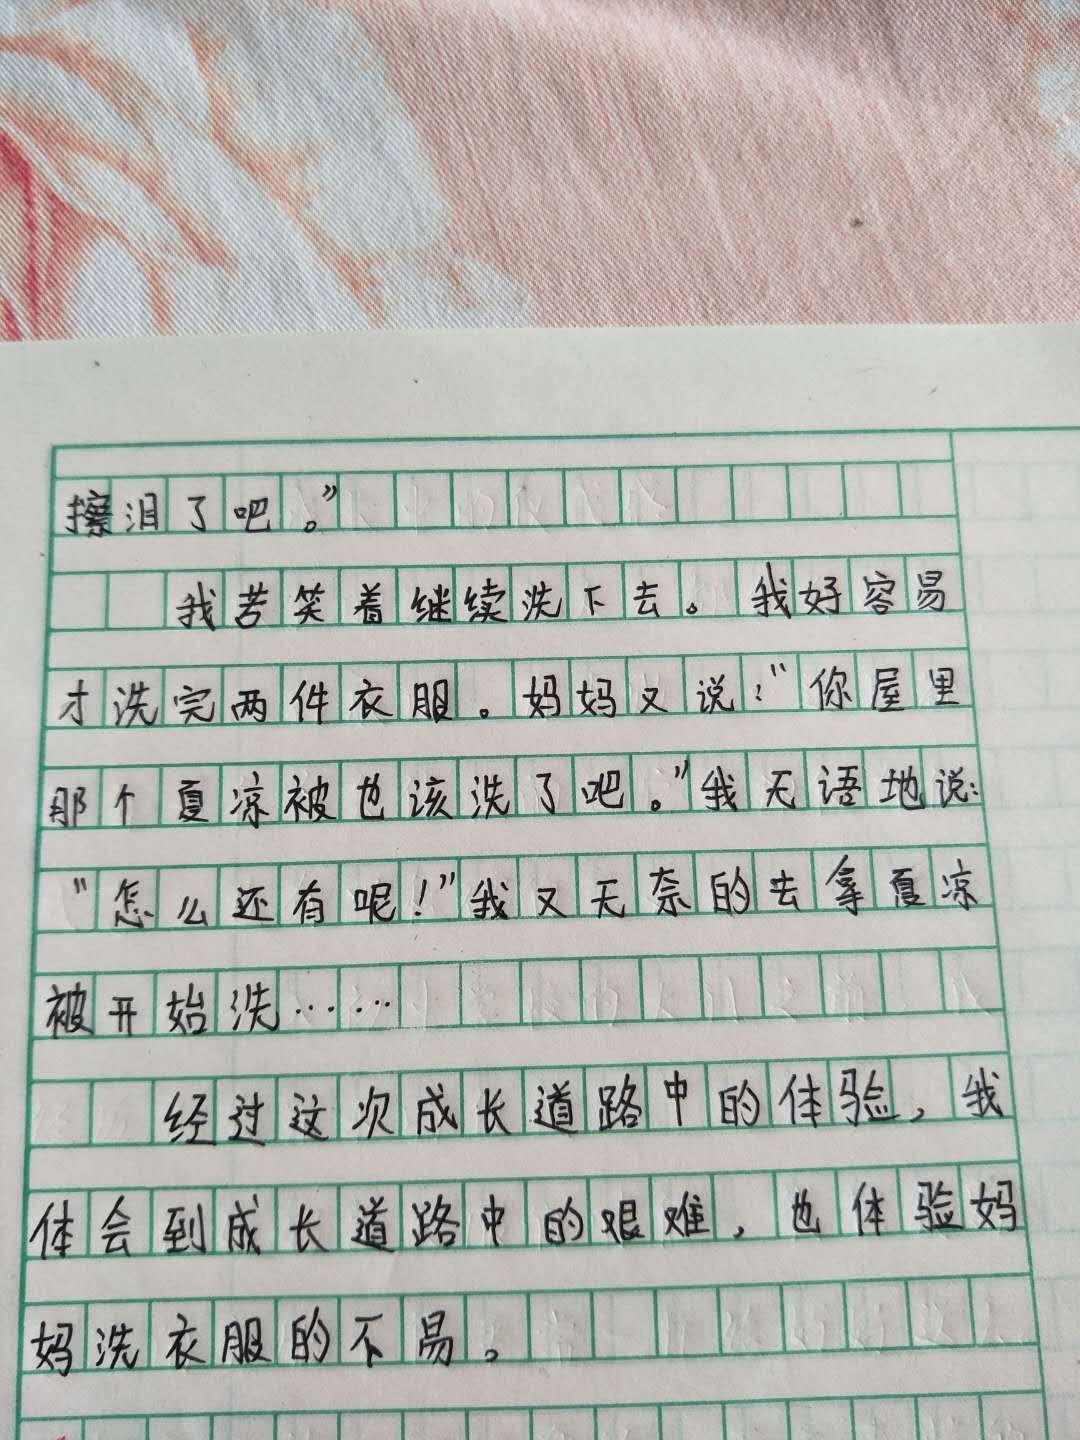 擦泪了吧。”
我苦笑着继续洗下去。我好容易
才洗完两件衣服。妈妈又说：“你屋里
那个夏凉被也该洗了吧。”我无语地说：
“怎么还有呢！”我又无奈的去拿夏凉
被开始洗……
经过这次成长道路中的体验，我
体会到成长道路中的艰难，也体验妈
妈洗衣服的不易。